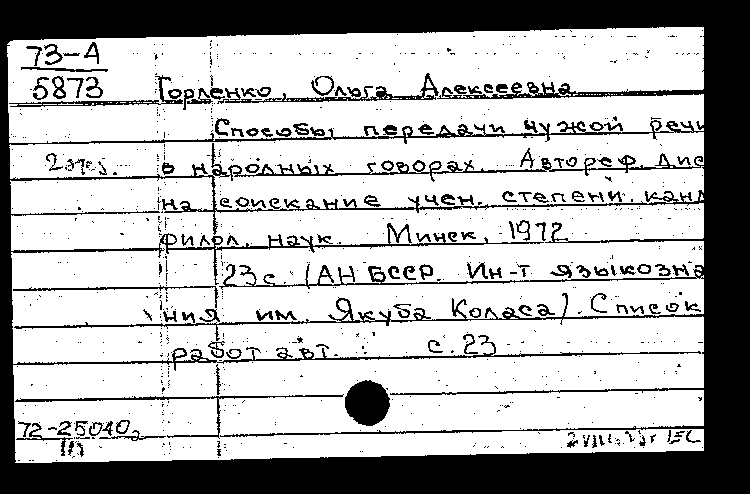 73-А
5873
Горленко, Ольга Алексеевна
Способы передачи чужой речи
2 экз.
в народных говорах. Автореф. дис
на соискание учен. степени канд
филол. наук. Минск, 1972
23 с. (АН БССР. Ин-т языкозна
ния им. Якуба Коласа). Список
работ авт. : с. 23
72-25040